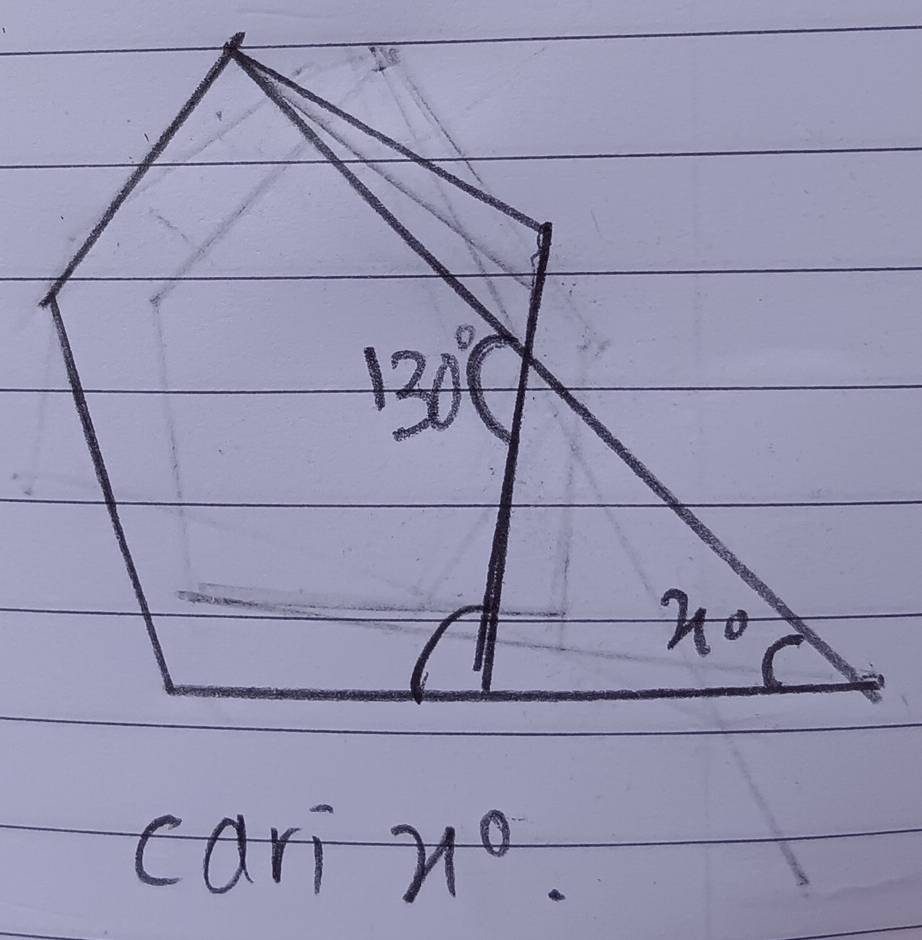 130°
x°
cari x°.